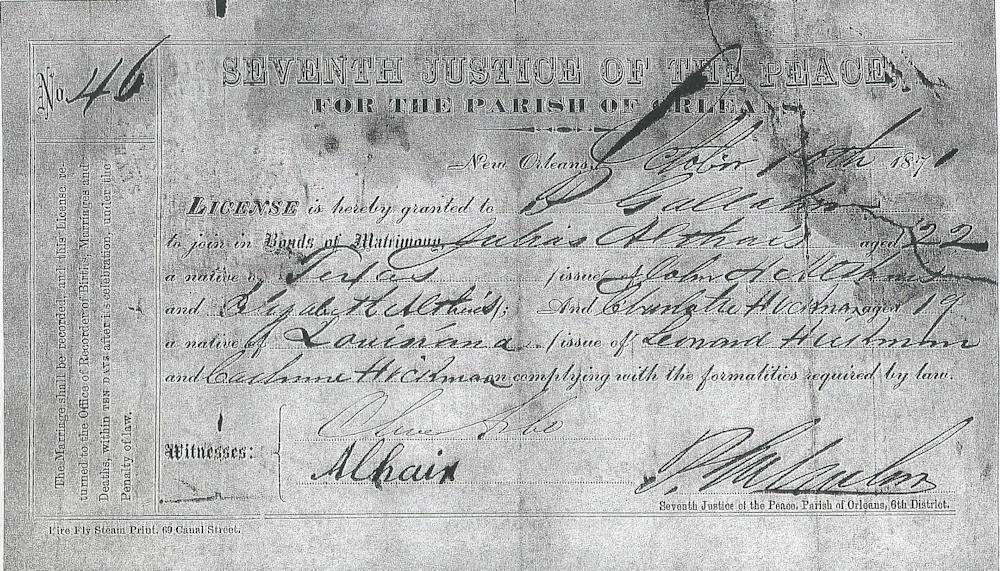 No. 46
SEVENTH JUSTICE OF THE PEACE,
FOR THE PARISH OF ORLEANS.
New Orleans, October 18th 1871
LICENSE is hereby granted to P Gallaher
to join in Bonds of Matrimony, Julius Althais aged 22
a native of Texas /issue of John H Althais
and Elizabeth Althais; And Hickman aged 19
a native of Louisiana /issue of Leonard Hickman
and Hickman on complying with the formalities required by law.
Witnesses:
Althaix
Seventh Justice of the Peace, Parish of Orleans, 6th District.
The Marriage shall be recorded, and this License re-
turned to the Office of Recorder of Birth, Marriages and
Deaths, within TEN DAYS after its celebration, under the
Penalty of law.
Fire Fly Steam Print. 69 Canal Street.